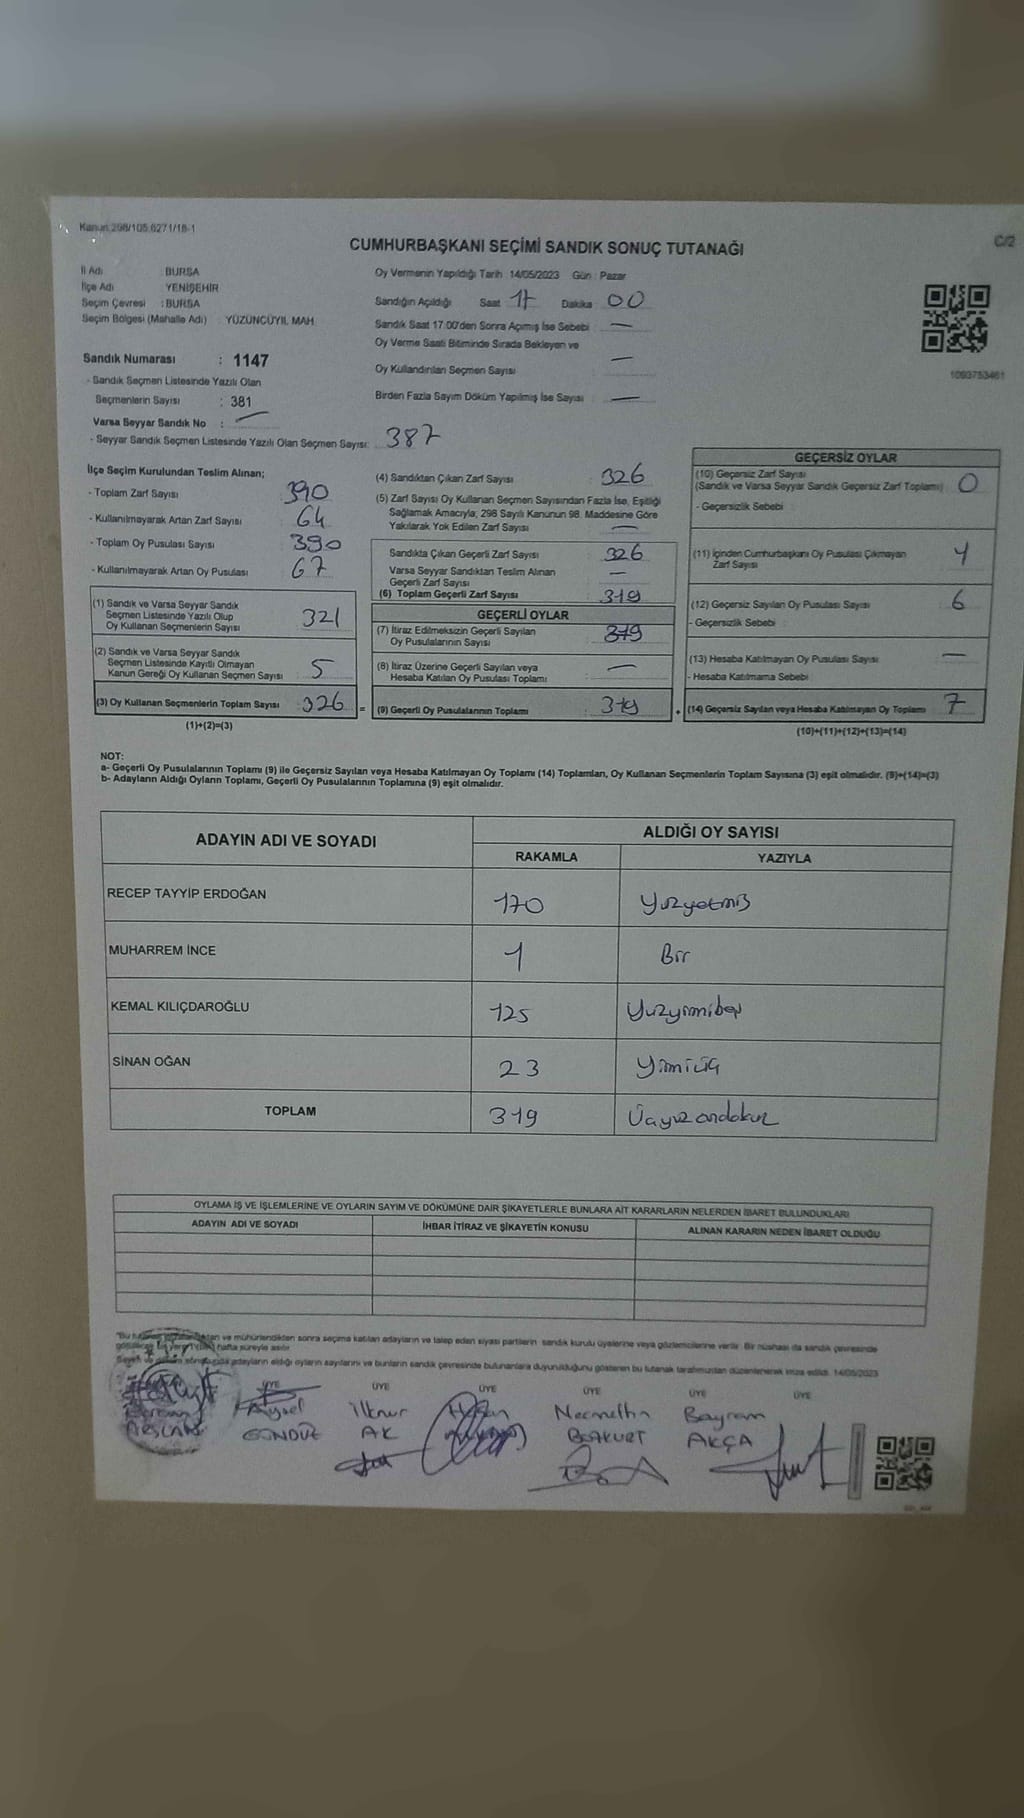 Kanun 298/105,6271/18-1
C/2
CUMHURBAŞKANI SEÇİMİ SANDIK SONUÇ TUTANAĞI
İl Adı : BURSA
İlçe Adı : YENİŞEHİR
Seçim Çevresi : BURSA
Seçim Bölgesi (Mahalle Adı) : YÜZÜNCÜYIL MAH.
Sandık Numarası : 1147
- Sandık Seçmen Listesinde Yazılı Olan
Seçmenlerin Sayısı : 381
Varsa Seyyar Sandık No : —
- Seyyar Sandık Seçmen Listesinde Yazılı Olan Seçmen Sayısı: 387
Oy Vermenin Yapıldığı Tarih 14/05/2023 Gün : Pazar
Sandığın Açıldığı Saat 17 Dakika 00
Sandık Saat 17:00'den Sonra Açımış İse Sebebi : —
Oy Verme Saati Bitiminde Sırada Bekleyen ve
Oy Kullandırılan Seçmen Sayısı : —
Birden Fazla Sayım Döküm Yapılmış İse Sayısı : —
1093753461
İlçe Seçim Kurulundan Teslim Alınan;
- Toplam Zarf Sayısı : 390
- Kullanılmayarak Artan Zarf Sayısı : 64
- Toplam Oy Pusulası Sayısı : 390
- Kullanılmayarak Artan Oy Pusulası : 67
(1) Sandık ve Varsa Seyyar Sandık
Seçmen Listesinde Yazılı Olup
Oy Kullanan Seçmenlerin Sayısı : 321
(2) Sandık ve Varsa Seyyar Sandık
Seçmen Listesinde Kayıtlı Olmayan
Kanun Gereği Oy Kullanan Seçmen Sayısı : 5
(3) Oy Kullanan Seçmenlerin Toplam Sayısı : 326
(1)+(2)=(3)
(4) Sandıktan Çıkan Zarf Sayısı : 326
(5) Zarf Sayısı Oy Kullanan Seçmen Sayısından Fazla İse, Eşitliği
Sağlamak Amacıyla, 298 Sayılı Kanunun 98. Maddesine Göre
Yakılarak Yok Edilen Zarf Sayısı : —
Sandıkta Çıkan Geçerli Zarf Sayısı : 326
Varsa Seyyar Sandıktan Teslim Alınan
Geçerli Zarf Sayısı : —
(6) Toplam Geçerli Zarf Sayısı : 319
GEÇERLİ OYLAR
(7) İtiraz Edilmeksizin Geçerli Sayılan
Oy Pusulalarının Sayısı : 319
(8) İtiraz Üzerine Geçerli Sayılan veya
Hesaba Katılan Oy Pusulası Toplamı : —
= (9) Geçerli Oy Pusulalarının Toplamı : 319
GEÇERSİZ OYLAR
(10) Geçersiz Zarf Sayısı
(Sandık ve Varsa Seyyar Sandık Geçersiz Zarf Toplamı) : 0
- Geçersizlik Sebebi :
(11) İçinden Cumhurbaşkanı Oy Pusulası Çıkmayan
Zarf Sayısı : 1
(12) Geçersiz Sayılan Oy Pusulası Sayısı : 6
- Geçersizlik Sebebi :
(13) Hesaba Katılmayan Oy Pusulası Sayısı : —
- Hesaba Katılmama Sebebi
+ (14) Geçersiz Sayılan veya Hesaba Katılmayan Oy Toplamı : 7
(10)+(11)+(12)+(13)=(14)
NOT:
a- Geçerli Oy Pusulalarının Toplamı (9) ile Geçersiz Sayılan veya Hesaba Katılmayan Oy Toplamı (14) Toplamları, Oy Kullanan Seçmenlerin Toplam Sayısına (3) eşit olmalıdır. (9)+(14)=(3)
b- Adayların Aldığı Oyların Toplamı, Geçerli Oy Pusulalarının Toplamına (9) eşit olmalıdır.
ADAYIN ADI VE SOYADI
ALDIĞI OY SAYISI
RAKAMLA YAZIYLA
RECEP TAYYİP ERDOĞAN 170 Yüzyetmiş
MUHARREM İNCE 1 Bir
KEMAL KILIÇDAROĞLU 125 Yüzyirmibeş
SİNAN OĞAN 23 Yirmiüç
TOPLAM 319 Üçyüzondokuz
OYLAMA İŞ VE İŞLEMLERİNE VE OYLARIN SAYIM VE DÖKÜMÜNE DAİR ŞİKAYETLERLE BUNLARA AİT KARARLARIN NELERDEN İBARET BULUNDUKLARI
ADAYIN ADI VE SOYADI İHBAR İTİRAZ VE ŞİKAYETİN KONUSU ALINAN KARARIN NEDEN İBARET OLDUĞU
ve mühürlendikten sonra seçime katılan adayların ve talep eden siyasi partilerin sandık kurulu üyelerine veya gözlemcilerine verilir. Bir nüshası da sandık çevresinde
hafta süreyle asılır.
adayların aldığı oyların sayılarını ve bunların sandık çevresinde bulunanlara duyurulduğunu gösteren bu tutanak tarafımızdan düzenlenerek imza edildi. 14/05/2023
ÜYE ÜYE ÜYE ÜYE ÜYE ÜYE
Aysel İlknur Necmettin Bayram
ARSLAN GÜNDÜZ AK BOZKURT AKÇA